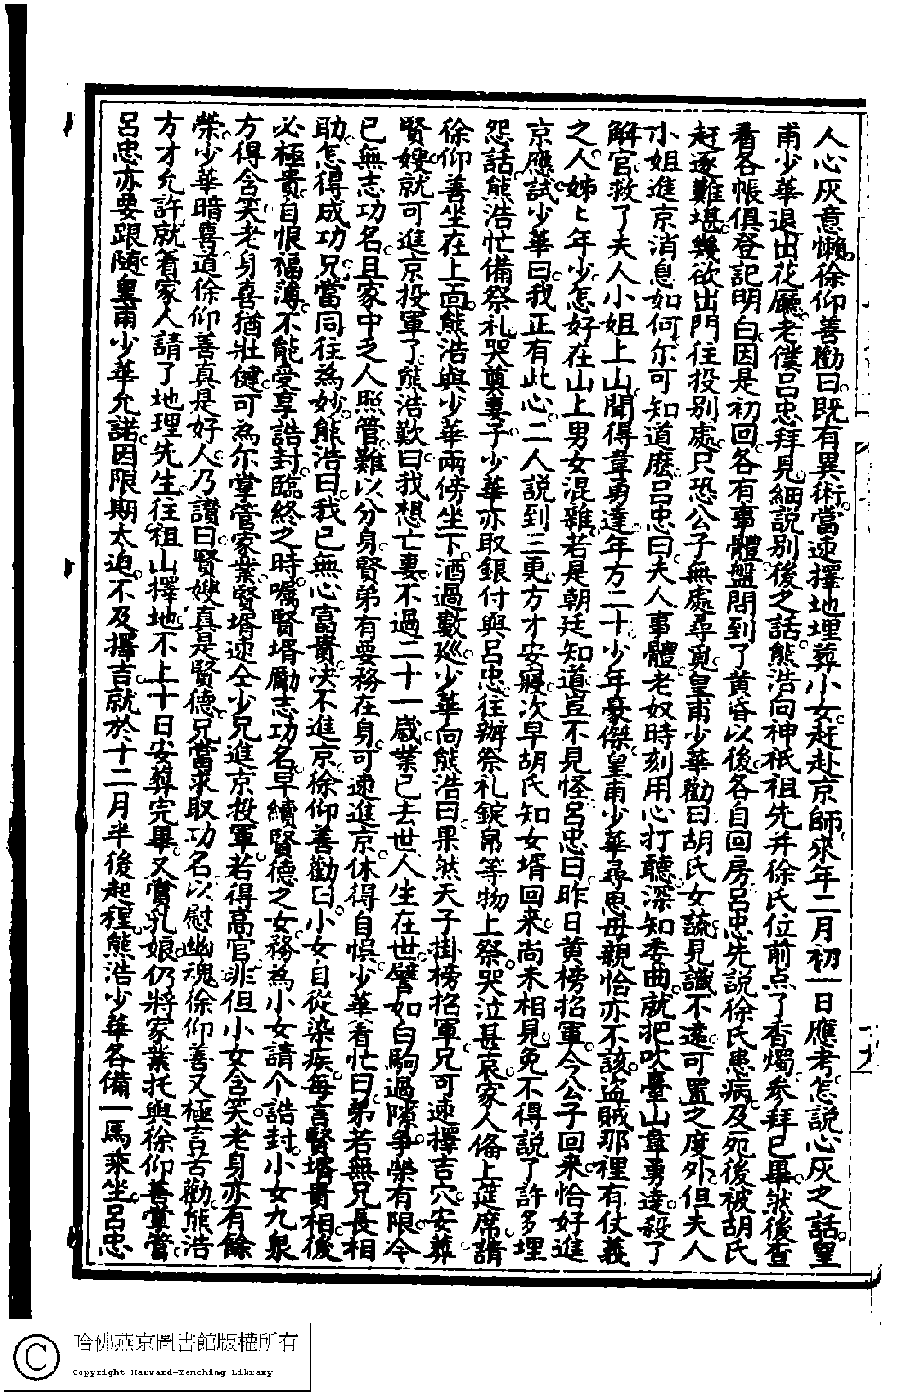 人心灰意懶徐仰善勸曰既有異術當速擇地埋葬小女赶赴京師來年二月初一日應考怎說心灰之話皇
甫少華退出花廳老僕呂忠拜見細說別後之話熊浩向神祇祖先并徐氏位前点了香燭參拜已畢然後查
看各帳俱登記明白因是初回各有事體盤問到了黃昏以後各自回房呂忠先說徐氏患病及死後被胡氏
赶逐難堪幾欲出門往投別處只恐公子無處尋覓皇甫少華勸曰胡氏女流見識不遠可置之度外但夫人
小姐進京消息如何尔可知道麽呂忠曰夫人事體老奴時刻用心打聽深知委曲就把吹臺山韋勇達殺了
解官救了夫人小姐上山聞得韋勇達年方二十少年豪傑皇甫少華尋思母親恰亦不該盜賊那裡有仗義
之人姊上年少怎好在山上男女混雜若是朝廷知道豈不見怪呂忠曰昨日黃榜招軍今公子回來恰好進
京應試少華曰我正有此心二人說到三更方才安寢次早胡氏知女壻回來尚未相見免不得說了許多埋
怨話熊浩忙備祭礼哭奠妻子少華亦取銀付與呂忠往辦祭礼錠帛等物上祭哭泣甚哀家人俻上筵席請
徐仰善坐在上面熊浩與少華兩傍坐下酒過數廵少華向熊浩曰果然天子掛榜招軍兄可速擇吉穴安葬
賢嫂就可進京投軍了熊浩歎曰我想亡妻不過二十一歲業已去世人生在世譬如白駒過隙爭榮有限今
已無志功名且家中乏人照管難以分身賢弟有要務在身可速進京休得自悞少華着忙曰弟若無兄長相
助怎得成功兄當同往為妙熊浩曰我已無心富貴决不進京徐仰善勸曰小女自從染疾每言賢壻貴相後
必極貴自恨福薄不能受享誥封臨終之時囑賢壻勵志功名早續賢德之女務為小女請个誥封小女九泉
方得含笑老身喜猶壯健可為尔掌管家業賢壻速仝少兄進京投軍若得高官非但小女含笑老身亦有餘
榮少華暗喜道徐仰善真是好人乃讃曰賢嫂真是賢德兄當求取功名以慰幽魂徐仰善又極言苦勸熊浩
方才允許就着家人請了地理先生往祖山擇地不上十日安葬完畢又賞乳娘仍將家業托與徐仰善掌管
呂忠亦要跟随皇甫少華允諾因限期太迫不及擇吉就於十二月半後起程熊浩少華各備一馬乘坐呂忠
哈佛燕京圖書館版權所有
Copyright Harvard-Yenching Library